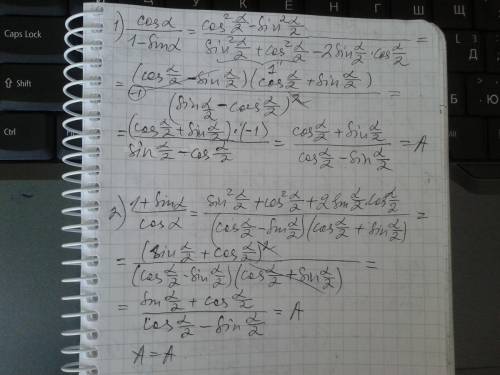 Caps Lock
Shift
Ctrl
1) cosα/(1-sinα) = (cos²α/2 - sin²α/2)/(sin²α/2 + cos²α/2 - 2sinα/2·cosα/2) =
1"
= (cosα/2 - sinα/2)(cosα/2 + sinα/2)/(sinα/2 - cosα/2)² =
(-1)
= (cosα/2 + sinα/2)·(-1)/(sinα/2 - cosα/2) = (cosα/2 + sinα/2)/(cosα/2 - sinα/2) = A
2) (1+sinα)/cosα = (sin²α/2 + cos²α/2 + 2sinα/2 cosα/2)/((cosα/2 - sinα/2)(cosα/2 + sinα/2)) =
= (sinα/2 + cosα/2)²/((cosα/2 - sinα/2)(cosα/2 + sinα/2)) =
= (sinα/2 + cosα/2)/(cosα/2 - sinα/2) = A
A = A